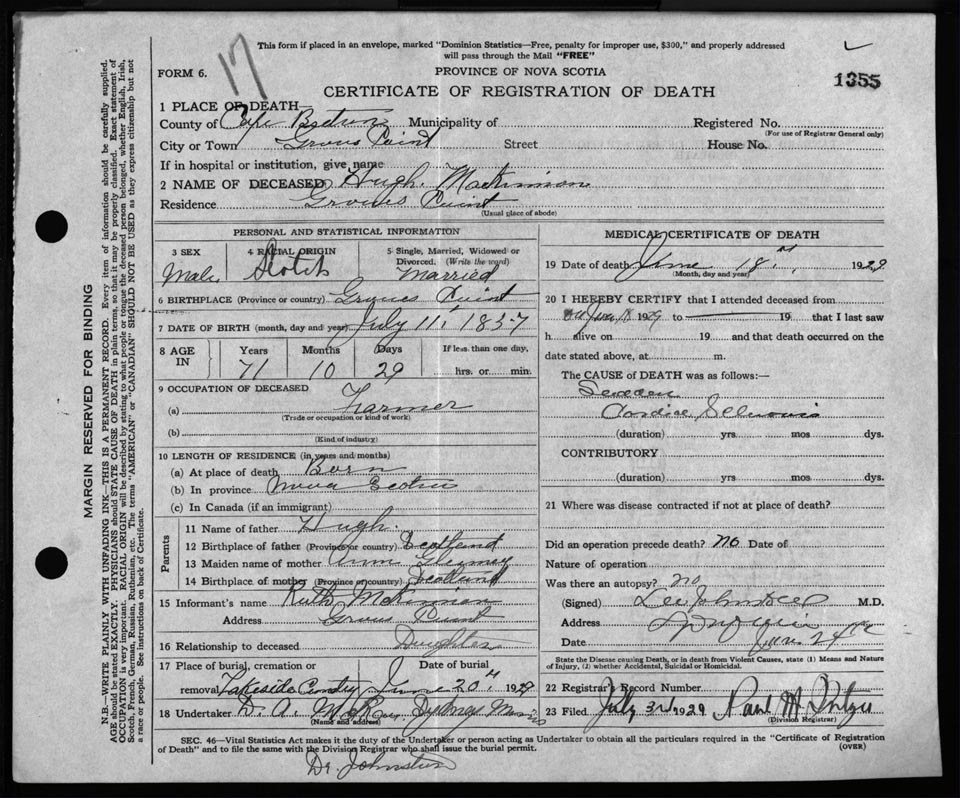 This form if placed in an envelope, marked "Dominion Statistics—Free, penalty for improper use, $300," and properly addressed
will pass through the Mail "FREE"
17
FORM 6.
PROVINCE OF NOVA SCOTIA
1355
CERTIFICATE OF REGISTRATION OF DEATH
1 PLACE OF DEATH
County of Cape Breton Municipality of Registered No.
(For use of Registrar General only)
City or Town Groves Point Street House No.
If in hospital or institution, give name
2 NAME OF DECEASED Hugh MacKinnon
Residence Groves Point
(Usual place of abode)
PERSONAL AND STATISTICAL INFORMATION
3 SEX Male
4 RACIAL ORIGIN Scotch
5 Single, Married, Widowed or
Divorced. (Write the word)
Married
6 BIRTHPLACE (Province or country) Groves Point
7 DATE OF BIRTH (month, day and year) July 11, 1857
8 AGE IN
Years Months Days If less than one day,
71 10 29 hrs. or min.
9 OCCUPATION OF DECEASED
(a) Farmer
(Trade or occupation or kind of work)
(b)
(Kind of industry)
10 LENGTH OF RESIDENCE (in years and months)
(a) At place of death Born
(b) In province Nova Scotia
(c) In Canada (if an immigrant)
Parents
11 Name of father Hugh
12 Birthplace of father (Province or country) Scotland
13 Maiden name of mother Ann
14 Birthplace of mother (Province or country) Scotland
15 Informant's name Ruth McKinnon
Address Groves Point
16 Relationship to deceased Daughter
17 Place of burial, cremation or Date of burial
removal Lakeside June 20th 1929
18 Undertaker D. A. Sydney Mines
(Name and address)
MEDICAL CERTIFICATE OF DEATH
19 Date of death June 18 1929
(Month, day and year)
20 I HEREBY CERTIFY that I attended deceased from
June 18 1929 to 19 that I last saw
h alive on 19 and that death occurred on the
date stated above, at m.
The CAUSE of DEATH was as follows:—
(duration) yrs mos dys.
CONTRIBUTORY
(duration) yrs mos dys.
21 Where was disease contracted if not at place of death?
Did an operation precede death? no Date of
Nature of operation
Was there an autopsy? no
(Signed) M.D.
Address
Date June 24th
State the Disease causing Death, or in death from Violent Causes, state (1) Means and Nature
of Injury, (2) whether Accidental, Suicidal or Homicidal.
22 Registrar's Record Number
23 Filed July 3rd 1929 Paul M.
(Division Registrar)
SEC. 46—Vital Statistics Act makes it the duty of the Undertaker or person acting as Undertaker to obtain all the particulars required in the "Certificate of Registration
of Death" and to file the same with the Division Registrar who shall issue the burial permit.
(OVER)
Dr. Johnston
MARGIN RESERVED FOR BINDING
N.B.—WRITE PLAINLY WITH UNFADING INK—THIS IS A PERMANENT RECORD. Every item of information should be carefully supplied.
AGE should be stated EXACTLY. PHYSICIANS should STATE CAUSE OF DEATH in plain terms, so that it may be properly classified. Exact statement of
OCCUPATION is very important. RACIAL ORIGIN will be described by stating to what people or tongue the deceased person belonged, whether English, Irish,
Scotch, French, German, Russian, Ruthenian, etc. The terms "AMERICAN" or "CANADIAN" SHOULD NOT BE USED as they express citizenship but not
a race or people. See instructions on back of Certificate.